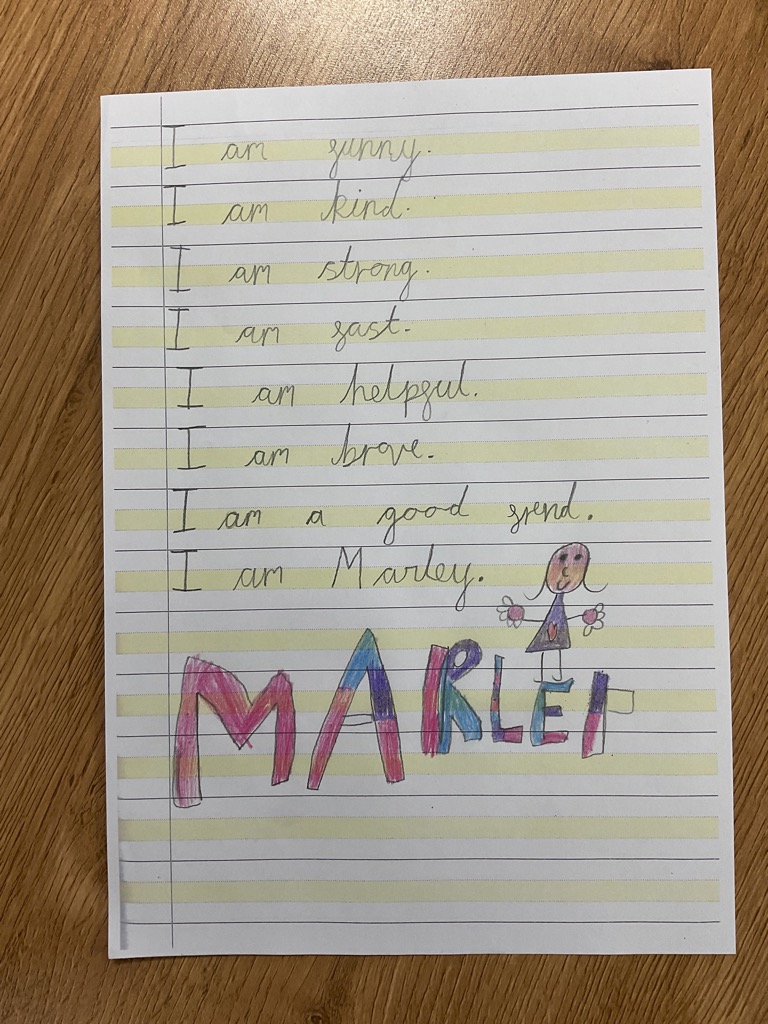 I am funny.
I am kind.
I am strong.
I am fast.
I am helpful.
I am brave.
I am a good frend.
I am Marley.
MARLEY